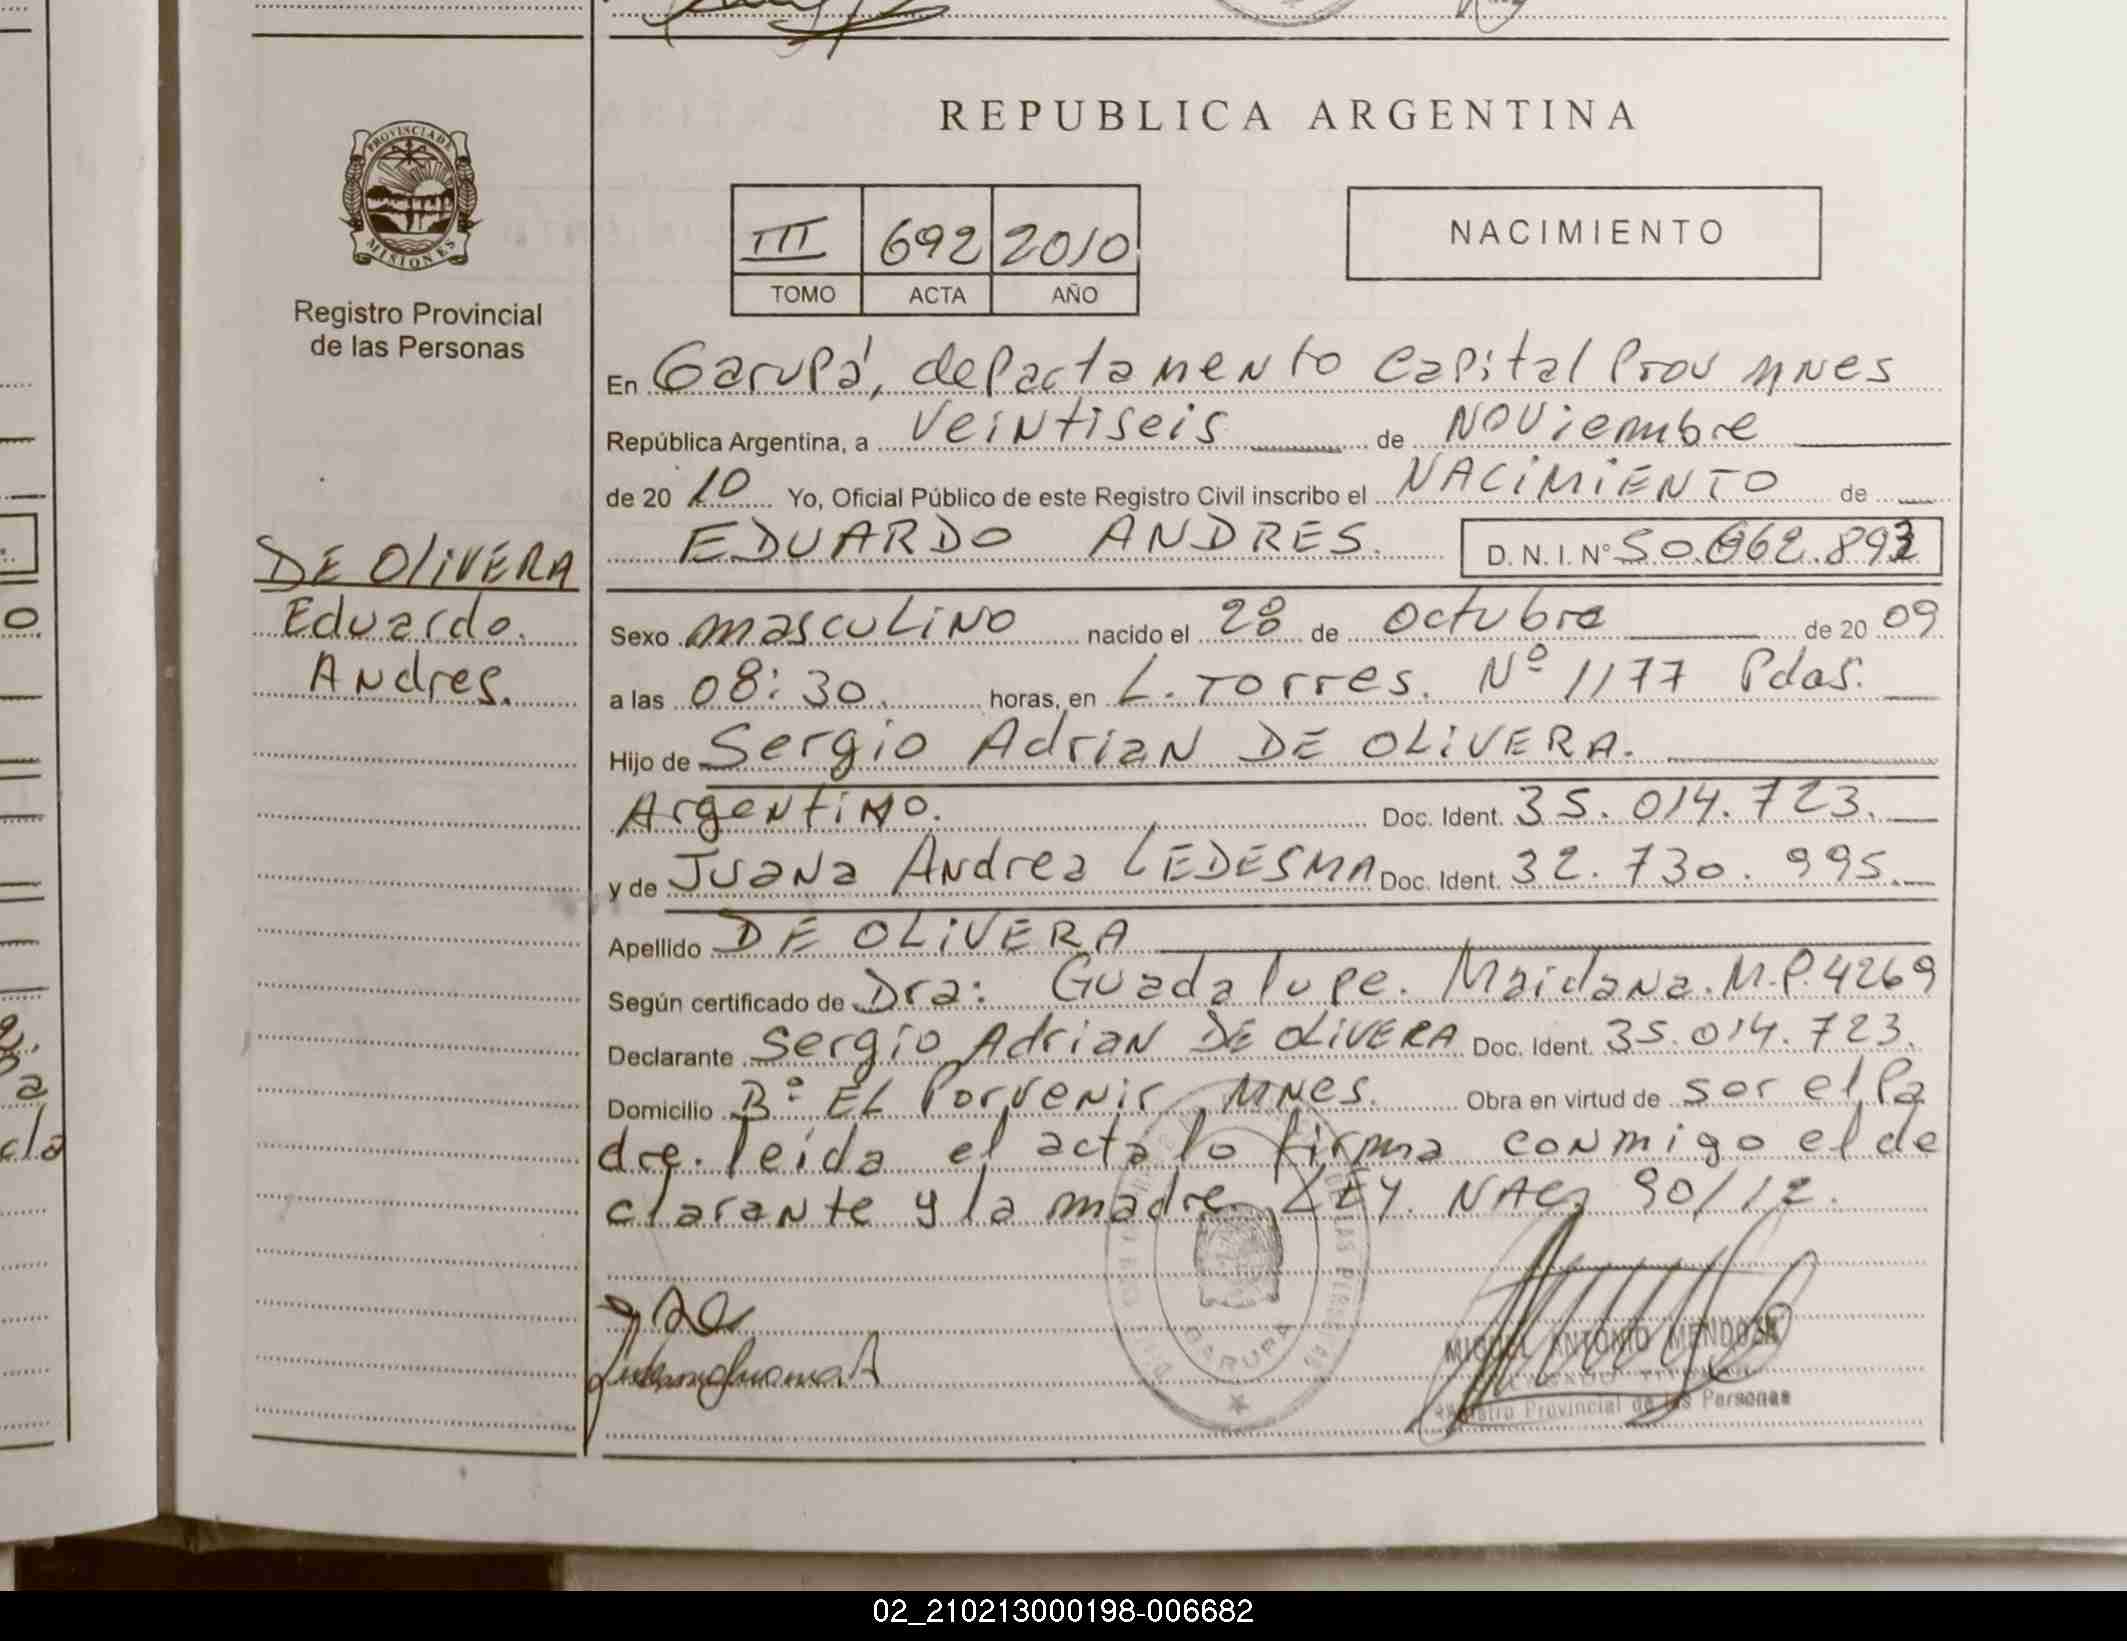 REPUBLICA ARGENTINA
PROVINCIA DE MISIONES
Registro Provincial
de las Personas
III 692 2010
TOMO ACTA AÑO
NACIMIENTO
En Garupá, departamento Capital Prov MNES
República Argentina, a veintiseis de Noviembre
de 20 10 Yo, Oficial Público de este Registro Civil inscribo el NACIMIENTO de
EDUARDO ANDRES. D. N. I. Nº
DE OLIVERA
Eduardo.
Andres.
Sexo masculino nacido el 28 de octubre de 20 09
a las 08:30. horas, en L. Torres. Nº 1177 Pdas.
Hijo de Sergio Adrian DE OLIVERA.
Argentino. Doc. Ident. 35.014.723.
y de Juana Andrea LEDESMA Doc. Ident. 32.730.995.
Apellido DE OLIVERA
Según certificado de Dra: Guadalupe. Maidana. M.P. 4269
Declarante Sergio Adrian DE OLIVERA Doc. Ident. 35.014.723.
Domicilio Bº EL Porvenir MNES. Obra en virtud de ser el Pa
dre. leida el acta lo firma conmigo el de
clarante y la madre LEY. NAC 90/12.
GARUPA
MIGUEL ANTONIO MENDOZA
Registro Provincial de las Personas
02_210213000198-006682